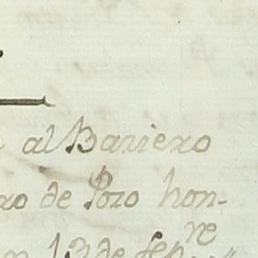 al Bariero
ro de Pozo hon-
13 de sep.re